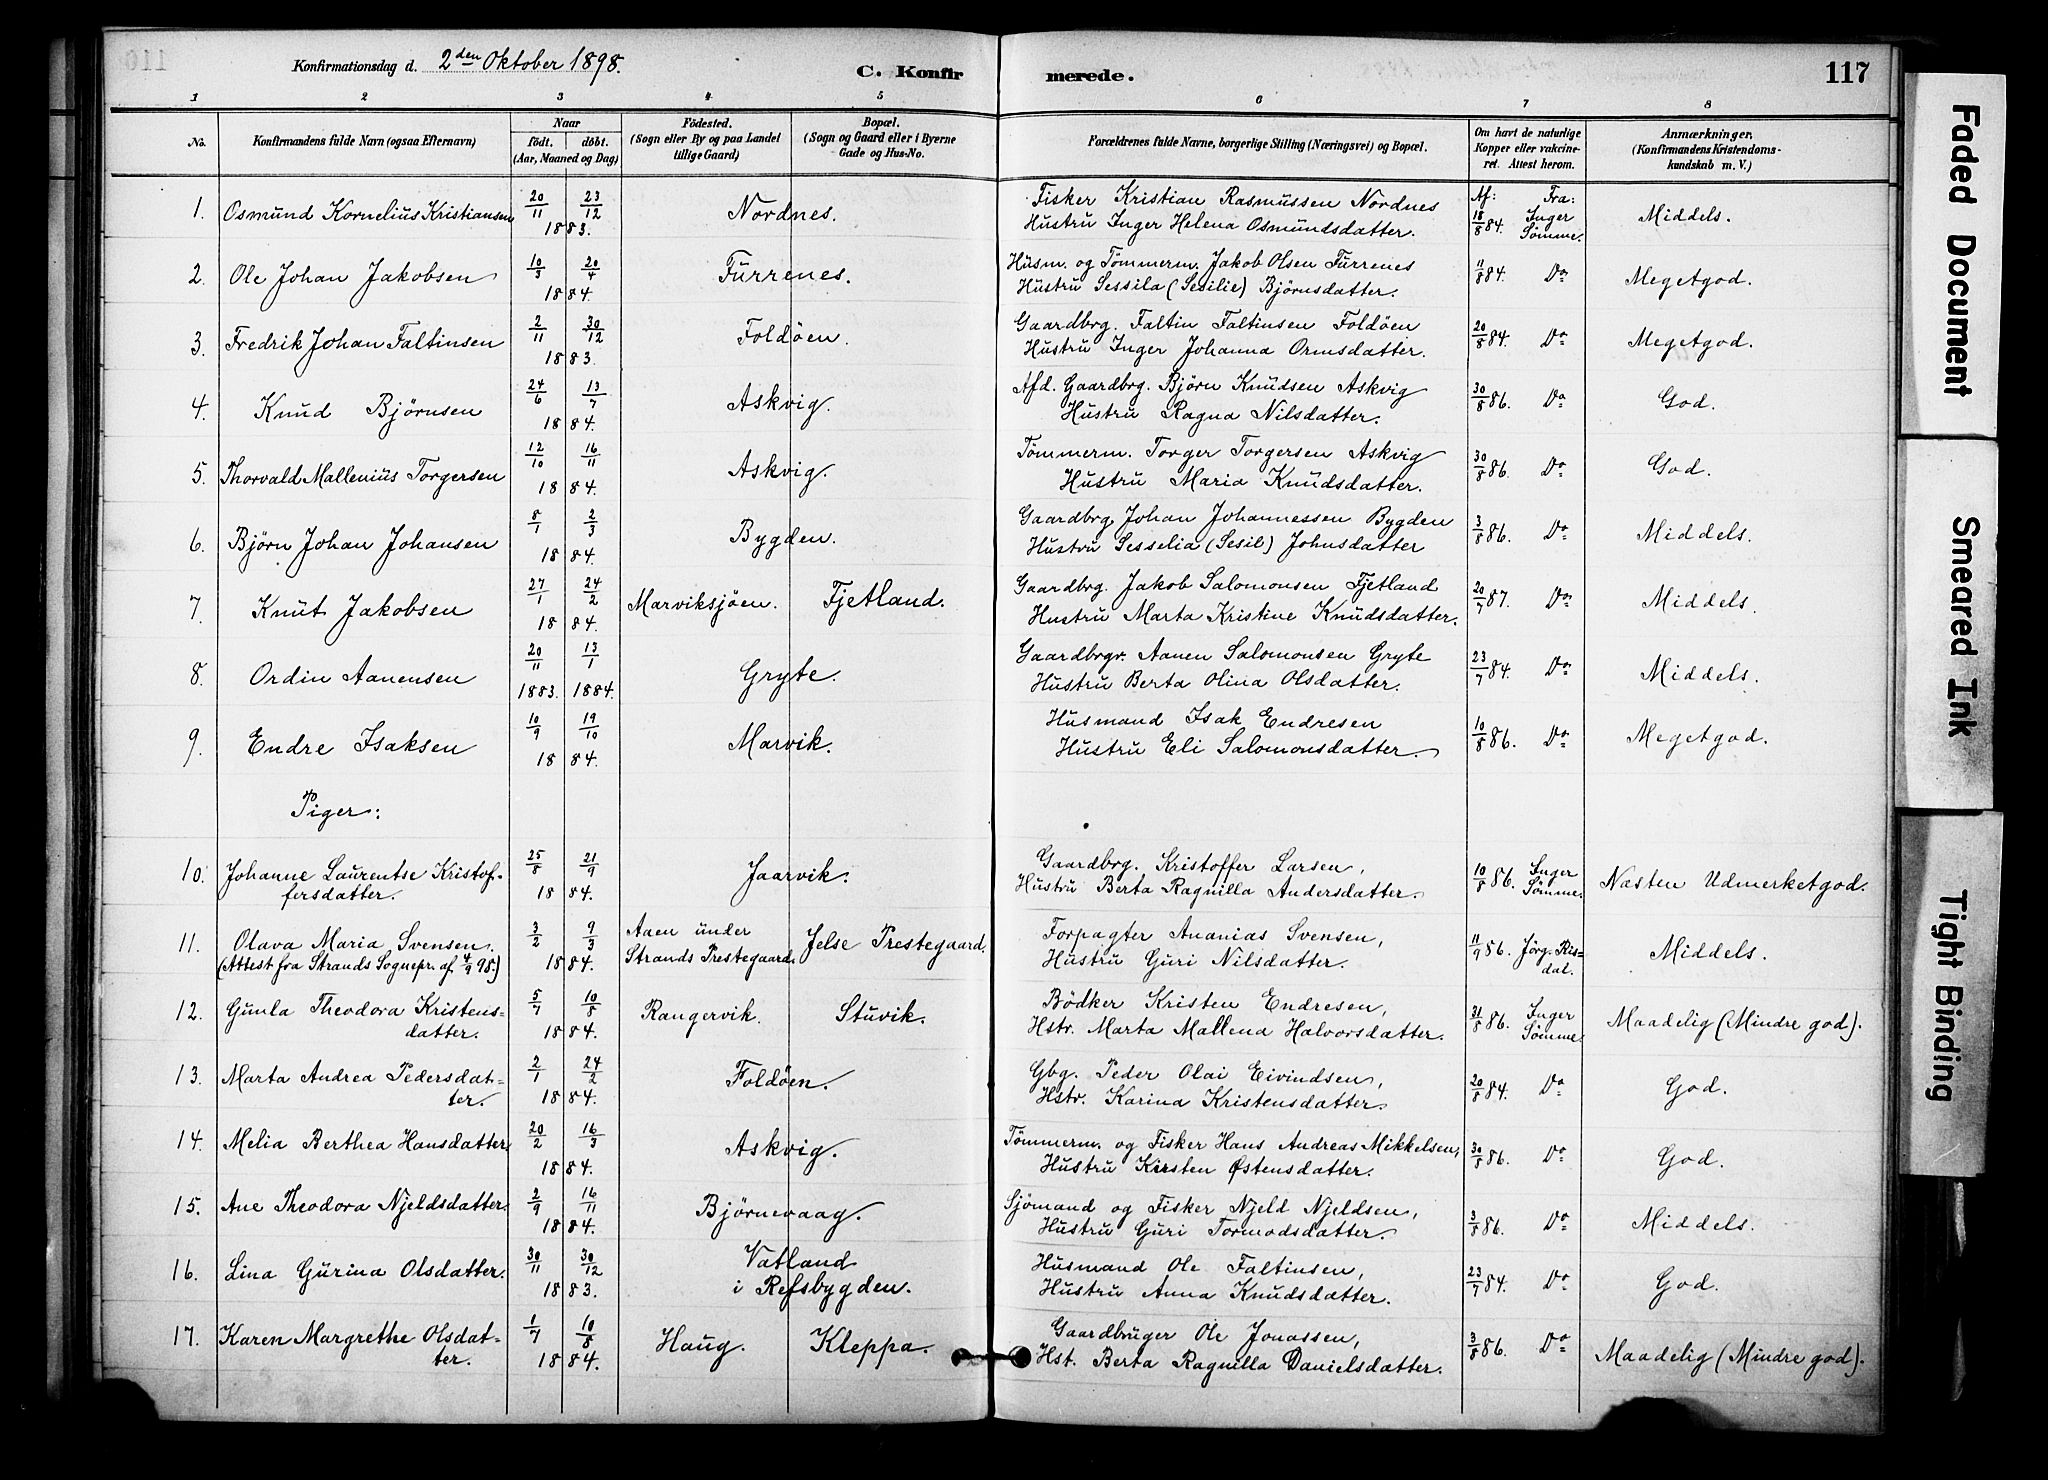 Konfirmationsdag d. 2den Oktober 1898.
C. Konfirmerede.
117
1 2 3 4 5 6 7 8
No.
Konfirmandens fulde Navn (ogsaa Efternavn)
Naar
født. døbt.
(Aar, Maaned og Dag)
Födested.
(Sogn eller By og paa Landet tillige Gaard)
Bopæl.
(Sogn og Gaard eller i Byerne Gade og Hus-No.
Forældrenes fulde Navne, borgerlige Stilling (Næringsvei) og Bopæl.
Om havt de naturlige Kopper eller vakcineret. Attest herom.
Anmærkninger.
(Konfirmandens Kristendomskundskab m. V.)
1. Osmund Kornelius Kristiansen 20/11 23/12 1883. Nordnes. Fisker Kristian Rasmussen Nordnes Af: Fra:
Hustru Inger Helena Osmundsdatter. 18/8 84. Inger Sømme. Middels.
2. Ole Johan Jakobsen 10/3 20/4 1884. Furrenes. Husm. og Tømmerm. Jakob Olsen Furrenes
Hustru Sessila (Sesilie) Bjørnsdatter. 11/8 84. Do Megetgod.
3. Fredrik Johan Faltinsen 2/11 30/12 1883. Foldøen. Gaardbrg. Faltin Faltinsen Foldøen
Hustru Inger Johanna Ormsdatter. 20/8 84. Do Megetgod.
4. Knud Bjørnsen 24/6 13/7 1884. Askvig. Afd. Gaardbrg. Bjørn Knudsen Askvig
Hustru Ragna Nilsdatter. 30/8 86. Do God.
5. Thorvald Mallenius Torgersen 12/10 16/11 1884. Askvig. Tømmerm. Torger Torgersen Askvig
Hustru Maria Knudsdatter. 30/8 86. Do God.
6. Bjørn Johan Johansen 8/1 2/3 1884. Bygden. Gaardbrg. Johan Johannessen Bygden
Hustru Sesselia (Sesil) Johnsdatter 3/8 86. Do Middels.
7. Knut Jakobsen 27/1 24/2 1884. Marviksjøen. Fjetland. Gaardbrg. Jakob Salomonsen Fjetland
Hustru Marta Kristine Knudsdatter. 20/7 87. Do Middels.
8. Ordin Aanensen 20/11 1883. 13/1 1884. Gryte. Gaardbrgr. Aanen Salomonsen Gryte
Hustru Berta Olina Olsdatter. 23/7 84. Do Middels.
9. Endre Isaksen 10/9 19/10 1884. Marvik. Husmand Isak Endresen
Hustru Eli Salomonsdatter. 10/8 86. Do Megetgod.
Piger:
10. Johanne Laurentse Kristof-
fersdatter. 25/8 21/9 1884. Jaarvik. Gaardbrg. Kristoffer Larsen,
Hustru Berta Ragnilla Andersdatter. 10/8 86. Inger Sømme. Næsten Udmerketgod.
11. Olava Maria Svensen.
(Attest fra Strands Sognepr. af 4/9 98.) 3/2 9/3 1884. Aaen under
Strands Prestegaard. Jelse Prestegaard. Forpagter Ananias Svensen,
Hustru Guri Nilsdatter. 11/9 86. Jörg. Risdal. Middels.
12. Gunla Theodora Kristens-
datter. 5/7 10/8 1884. Rangervik. Stuvik. Bødker Kristen Endresen,
Hstr. Marta Mallena Halvorsdatter. 31/8 86. Inger Sømme. Maadelig (Mindre god).
13. Marta Andrea Pedersdat-
ter. 2/1 24/2 1884. Foldøen. Gbg. Peder Olai Eivindsen,
Hstr. Karina Kristensdatter. 20/8 84. Do God.
14. Melia Berthea Hansdatter 20/2 16/3 1884. Askvig. Tømmerm. og Fisker Hans Andreas Mikkelsen,
Hustru Kirsten Østensdatter. 30/8 86. Do God.
15. Ane Theodora Njeldsdatter. 2/9 16/11 1884. Bjørnevaag. Sjømand og Fisker Njeld Njeldsen,
Hustru Guri Tormodsdatter. 3/8 86. Do Middels.
16. Lina Gurina Olsdatter. 30/11 30/12 1883. Vatland
i Refsbygden. Husmand Ole Faltinsen,
Hustru Anna Knudsdatter. 23/7 84. Do God.
17. Karen Margrethe Olsdat-
ter. 1/7 10/8 1884. Haug. Kleppa. Gaardbruger Ole Jonassen,
Hst. Berta Ragnilla Danielsdatter. 3/8 86. Do Maadelig (Mindre god).
Faded Document
Smeared Ink
Tight Binding